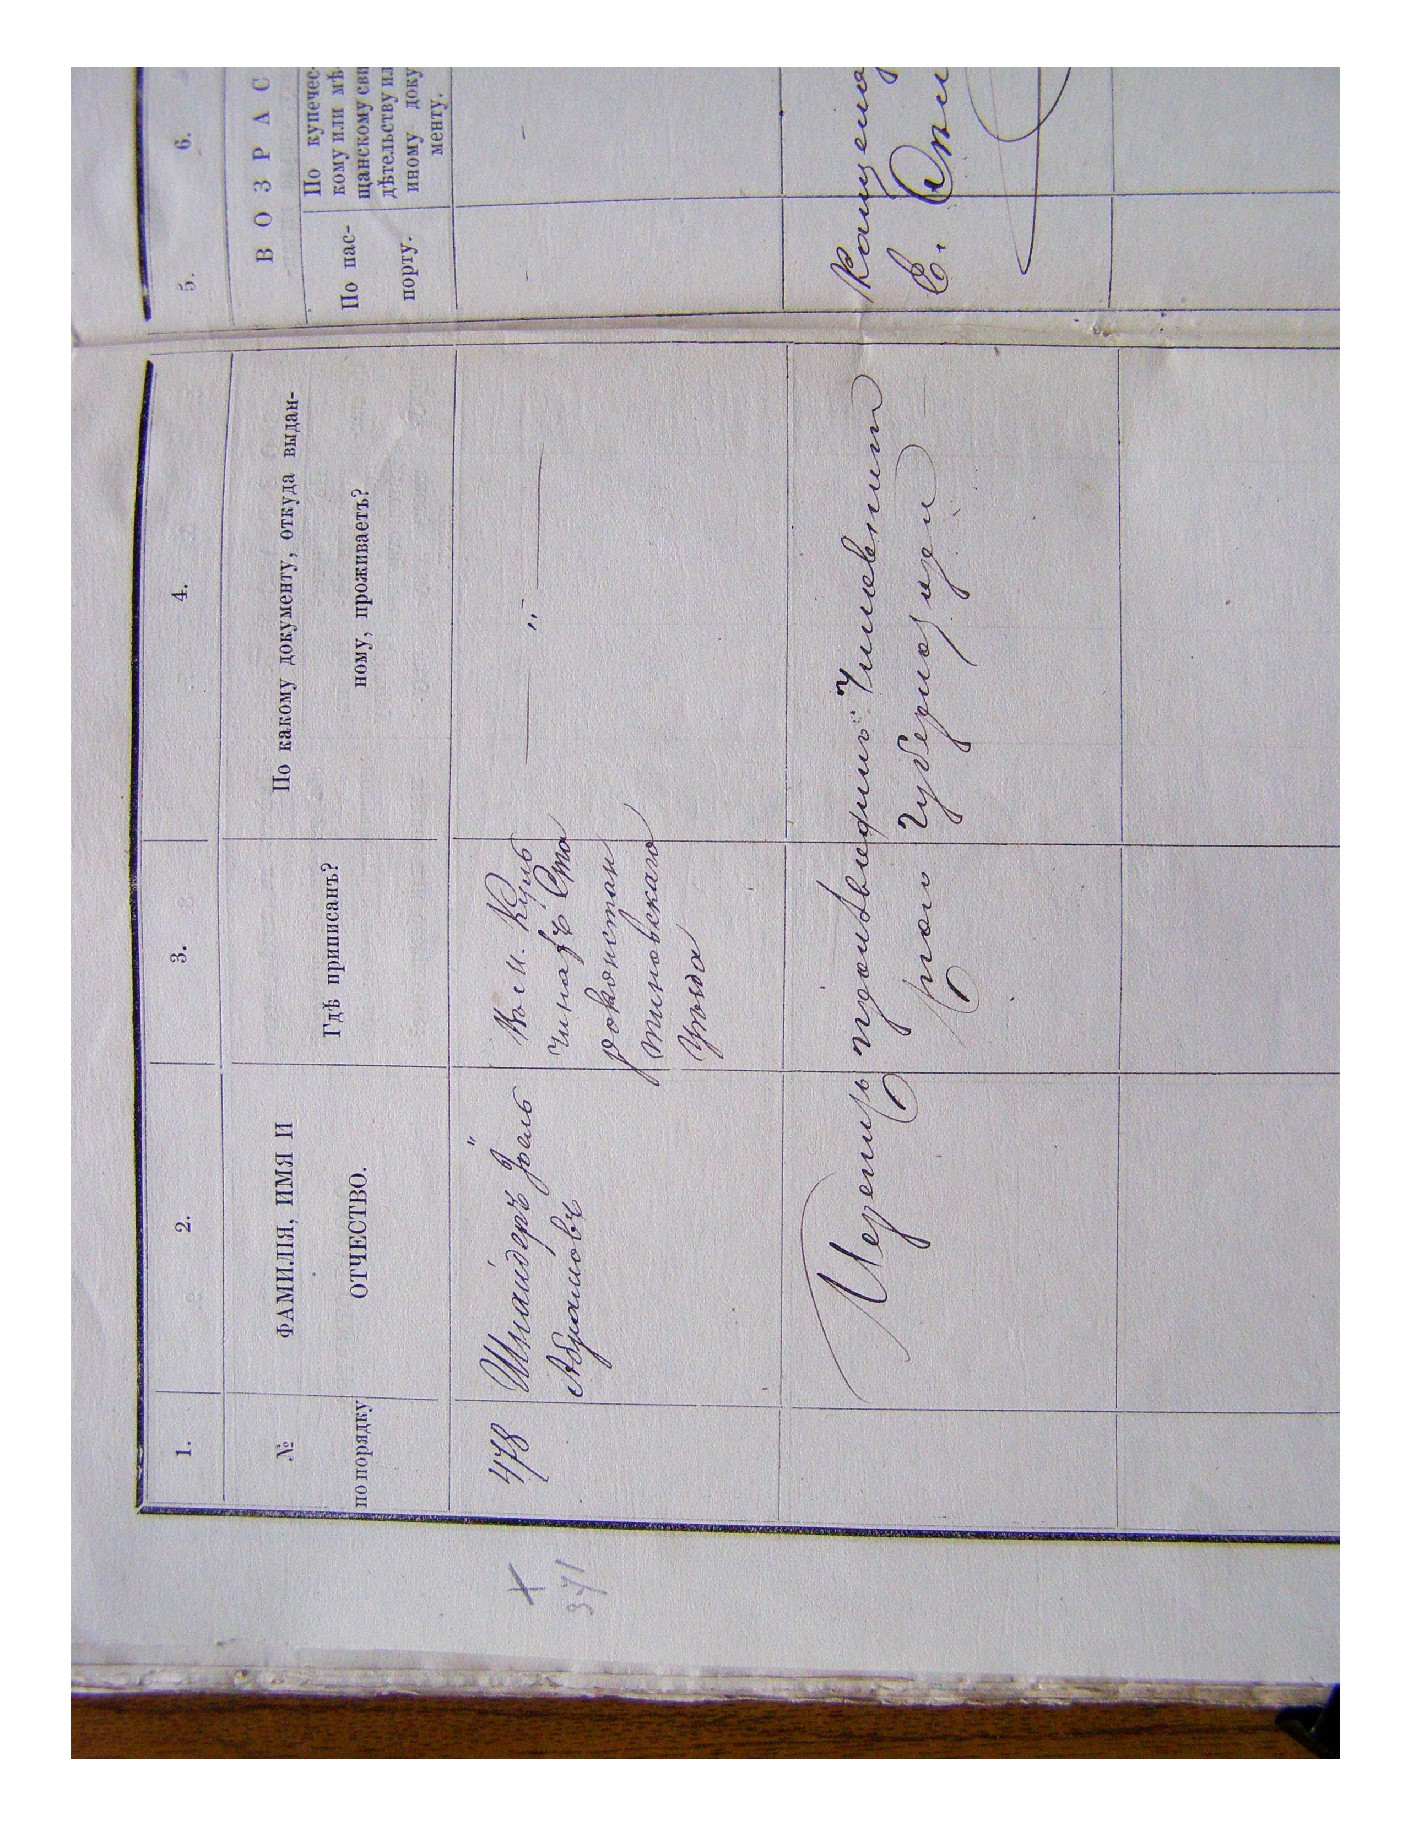 1.
2.
3.
4.
5.
6.
№
по порядку
ФАМИЛІЯ, ИМЯ И
ОТЧЕСТВО.
Гдѣ приписанъ?
По какому документу, откуда выдан-
ному, проживаетъ?
В О З Р А С
По пас-
порту.
По купечес-
кому или мѣ-
щанскому сви
дѣтельству ил
иному доку
менту.
478
Шнайдеръ Іось
Абрамовъ
Кол. Куль
чинахъ Ста
роконстан
тиновскаго
Уѣзда
"
-
-
Перепись произведилъ Чиновникъ
Канцеля
ского Губернатора
Е.
+
371